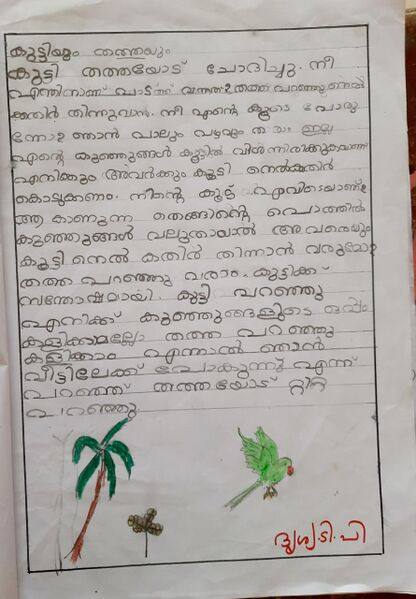 കുട്ടിയും തത്തയും
കുട്ടി തത്തയോട് ചോദിച്ചു. നീ
എന്തിനാണ് പാടത്ത് വന്നത്? തത്ത പറഞ്ഞു ഞാൻ
കതിർ തിന്നുവാൻ. നീ എന്റെ കൂടെ പോരു
ന്നോ? ഞാൻ പാലും പഴവും തരാം ഇല്ല
എന്റെ കുഞ്ഞുങ്ങൾ കൂട്ടിൽ വിശന്നിരിക്കുകയാണ്
എനിക്കും അവർക്കും കൂട്ടി നെൽകതിർ
കൊടുക്കണം. നിന്റെ കൂട് എവിടെയാണ്?
ആ കാണുന്ന തെങ്ങിന്റെ പൊത്തിൽ
കുഞ്ഞുങ്ങൾ വലുതായാൽ അവരെയും
കൂട്ടി നെൽ കതിർ തിന്നാൻ വരുമോ?
തത്ത പറഞ്ഞു വരാം. കുട്ടിക്ക്
സന്തോഷമായി. കുട്ടി പറഞ്ഞു
എനിക്ക് കുഞ്ഞുങ്ങളുടെ ഒപ്പം
കളിക്കാമല്ലോ തത്ത പറഞ്ഞു
കളിക്കാം എന്നാൽ ഞാൻ
വീട്ടിലേക്ക് പോകുന്നു എന്ന്
പറഞ്ഞ് തത്തയോട് റ്റാറ്റ
പറഞ്ഞു.
ദൃശ്യ.ടി.പി